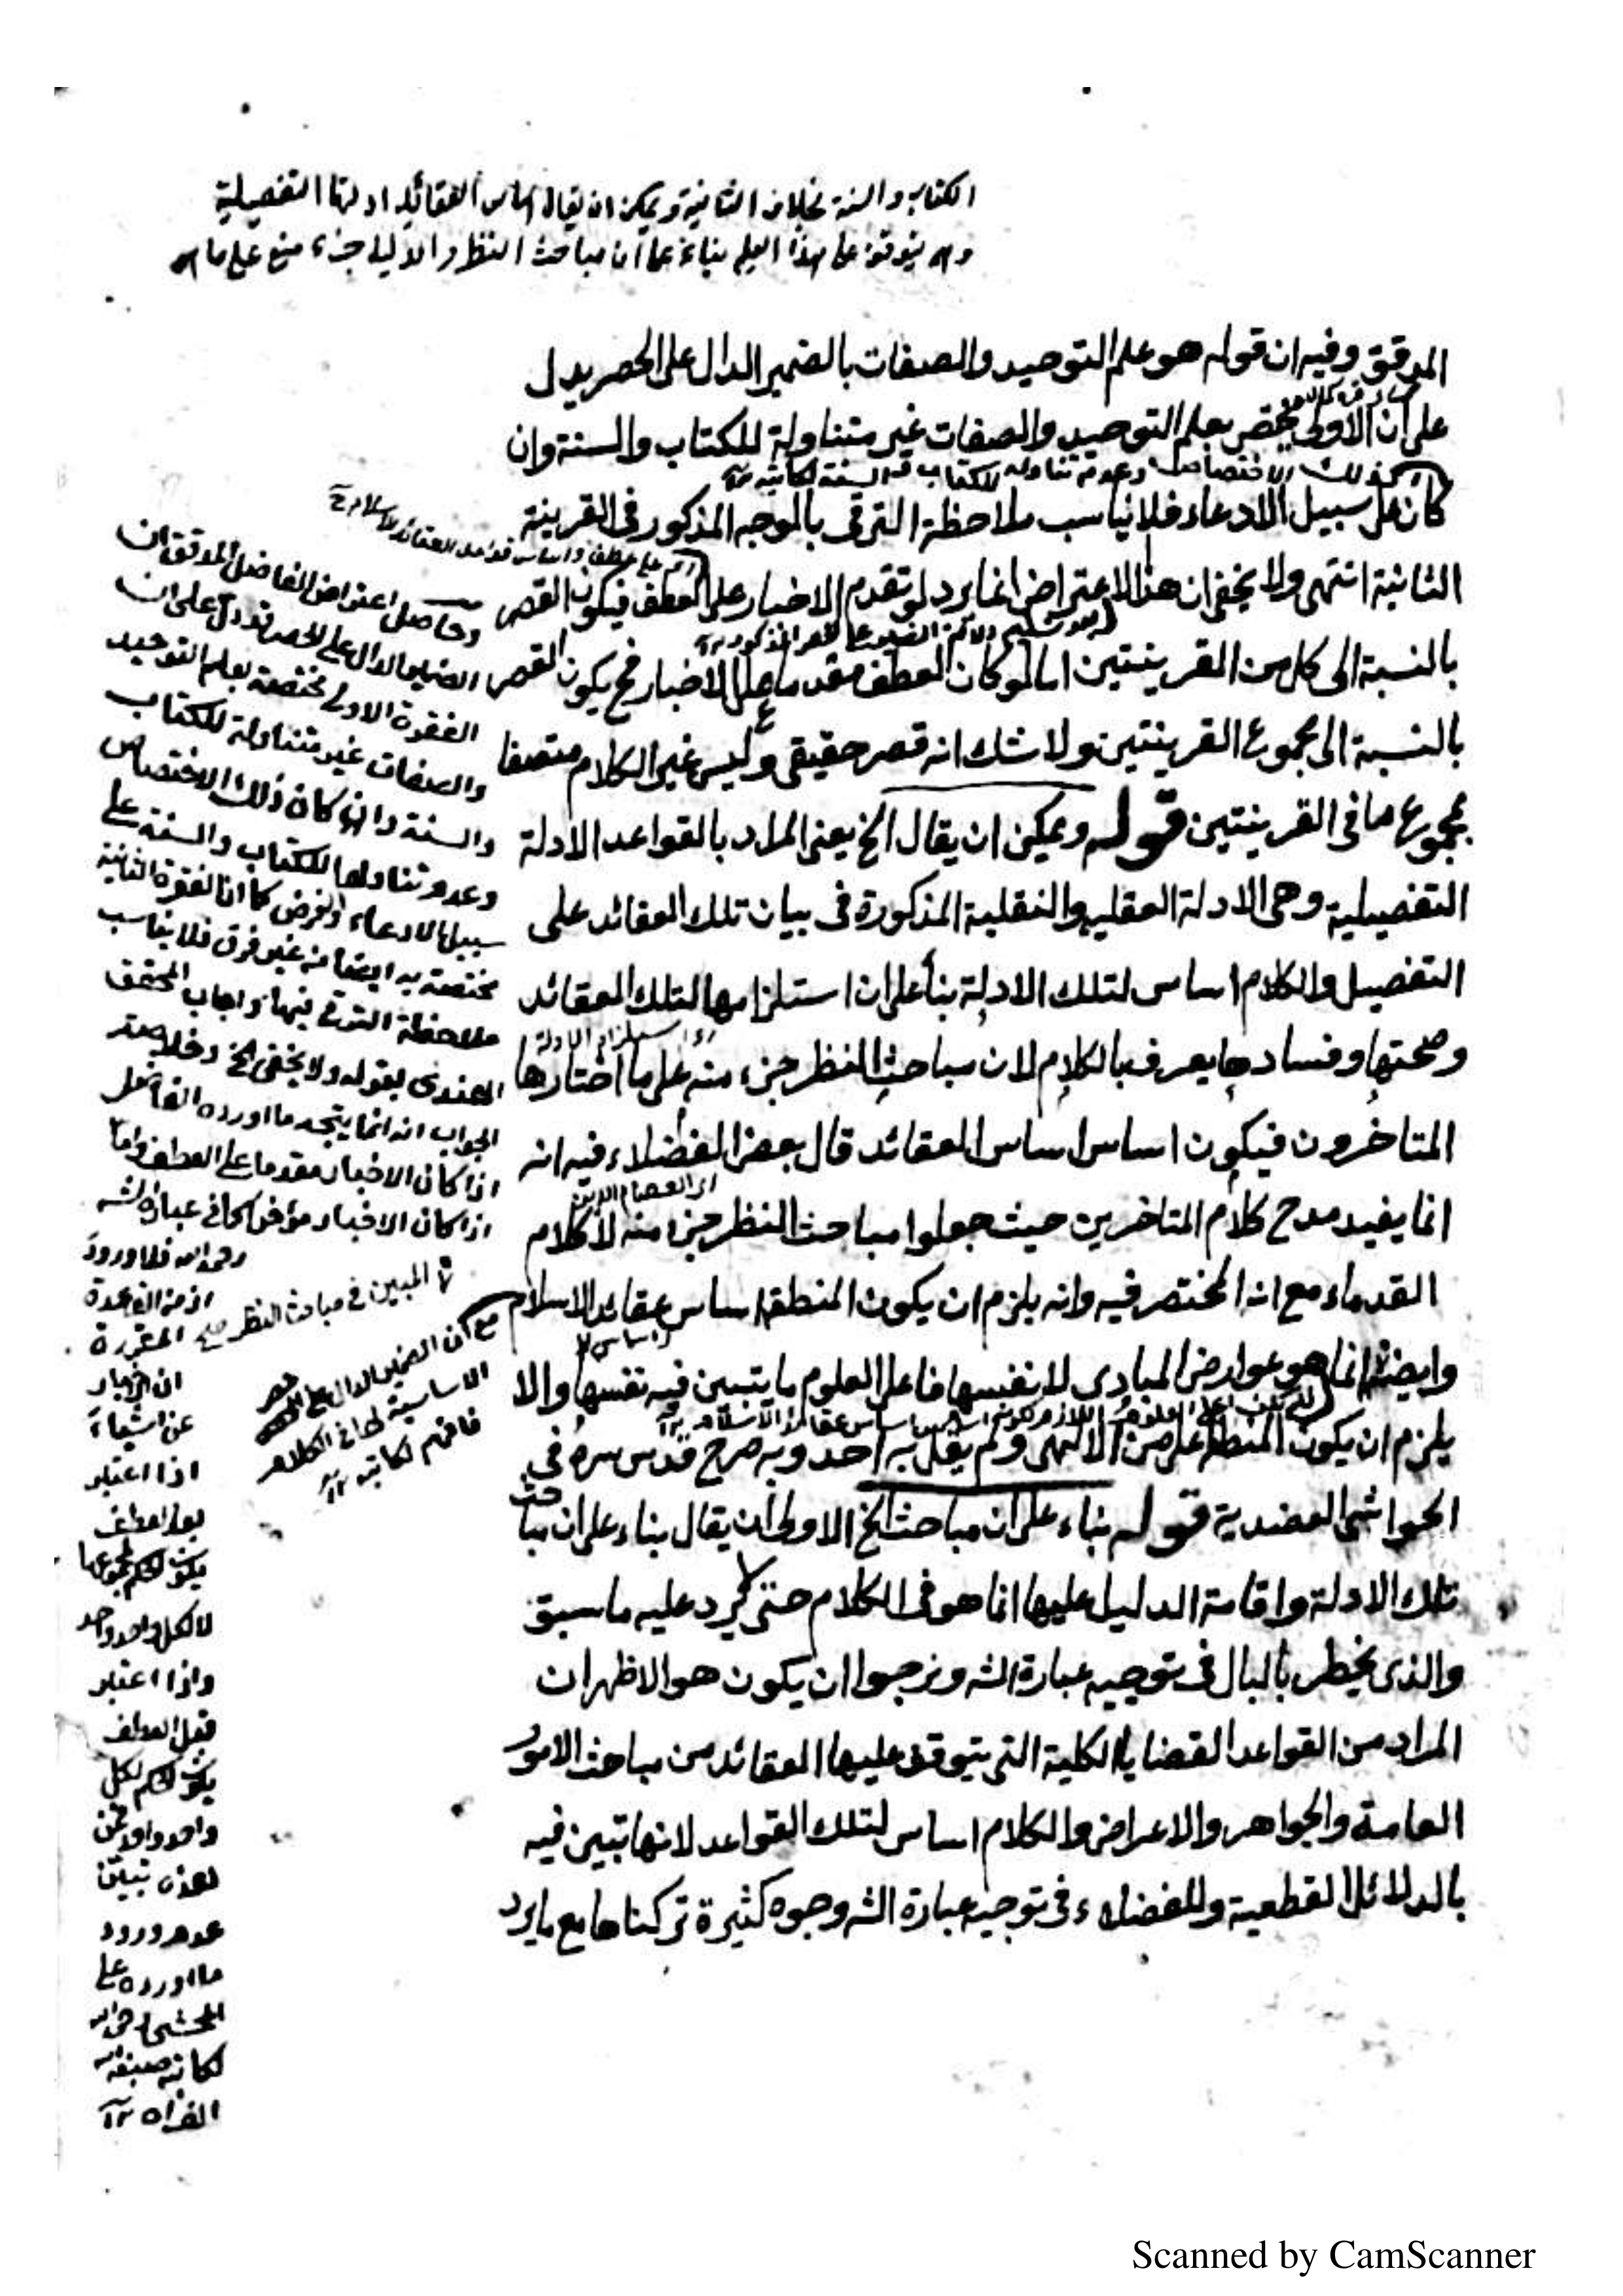 الكتاب والسنة بخلاف الثانية ويمكن ان يقال اساس العقائد ادلتها التفصيلية
وهى يتوقف على هذا العلم بناء على ان مباحث النظر والدليل جزء منه على ما
المدقق وفيه ان قوله هو علم التوحيد والصفات بالضمير الدال على الحصر يدل
على ان الاولى مختص بعلم التوحيد والصفات غير متناولة للكتاب والسنة وان
كان على سبيل الادعاء فلا يناسب ملاحظة الترقى بالوجه المذكور فى القرينة
الثانية انتهى ولا يخفى ان هذا الاعتراض انما يرد لو تقدم الاخبار على العطف فيكون القصر
بالنسبة الى كل من القرينتين اما لو كان العطف مقدما على الاخبار فح يكون القصر
بالنسبة الى مجموع القرينتين ولا شك انه قصر حقيقى وليس غير الكلام متصفا
بمجموع ما فى القرينتين قوله ويمكن ان يقال الخ يعنى المراد بالقواعد الادلة
التفصيلية وهى الادلة العقلية والنقلية المذكورة فى بيان تلك العقائد على
التفصيل والكلام اساس لتلك الادلة بناء على ان استلزامها لتلك العقائد
وصحتها وفسادها يعرف بالكلام لان مباحث النظر جزء منه على ما اختارها
المتاخرون فيكون اساس اساس العقائد قال بعض الفضلاء فيه انه
اى العصام الدين
انما يفيد مدح كلام المتاخرين حيث جعلوا مباحث النظر جزء منه لا كلام
القدماء مع انه المختصر فيه وانه يلزم ان يكون المنطق اساس عقائد الاسلام
وايضا انما هو عوارض المبادى لا نفسها فاعلى العلوم ما يتبين فيه نفسها والا
يلزم ان يكون المنطق اعلى من الالهى ولم يقل به احد وبه صرح قدس سره فى
الحواشى العضدية قوله بناء على ان مباحث الخ الاولى ان يقال بناء على ان مباحث
تلك الادلة واقامة الدليل عليها انما هو فى الكلام حتى لا يرد عليه ما سبق
والذى يخطر بالبال فى توجيه عبارة الشه ونرجوا ان يكون هو الاظهر ان
المراد من القواعد القضايا الكلية التى يتوقف عليها العقائد من مباحث الامور
العامة والجواهر والاعراض والكلام اساس لتلك القواعد لانها تبين فيه
بالدلائل القطعية وللفضلاء فى توجيه عبارة الشه وجوه كثيرة تركناها مع ما يرد
وحاصل اعتراض الفاضل المدقق ان
الضمير الدال على الحصر يدل على ان
الفقرة الاولى مختصة بعلم التوحيد
والصفات غير متناولة للكتاب
والسنة وان كان ذلك الاختصاص
وعدم تناولها للكتاب والسنة على
سبيل الادعاء والفرض كما ان الفقرة الثانية
مختصة به ايضا من غير فرق فلا يناسب
ملاحظة الترقى فيها واجاب المحقق
الهندى بقوله ولا يخفى الخ وخلاصة
الجواب انه انما يتجه ما اورده الفاضل
اذا كان الاخبار مقدما على العطف واما
اذا كان الاخبار مؤخرا كما فى عبارة الشه
رحمه الله فلا ورود
اذ من القاعدة
المقررة
ان الاخبار
عن اشياء
اذا اعتبر
بعد العطف
يكون الحكم لمجموعها
لا لكل واحد واحد
واذا اعتبر
قبل العطف
يكون الحكم لكل
واحد واحد
عدم ورود
ما اورده على
المحشى
مع ان الضمير الدال على حصر
الاساسية لما فى الكلام
فافهم لكاتبه ١٢
Scanned by CamScanner